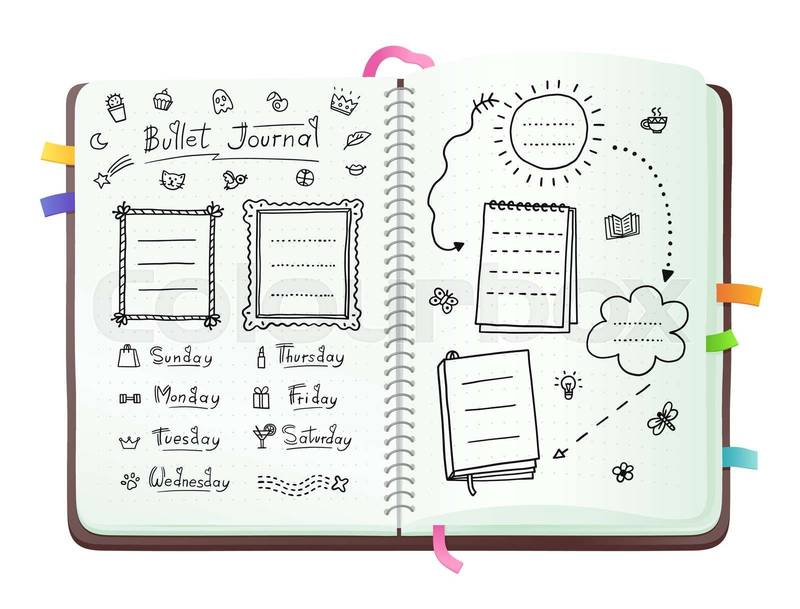 Bullet Journal
Sunday
Monday
Tuesday
Wednesday
Thursday
Friday
Saturday
Colourbox